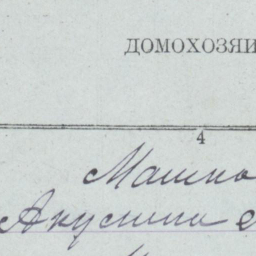 ДОМОХОЗЯИ
4
Машко
Акулина